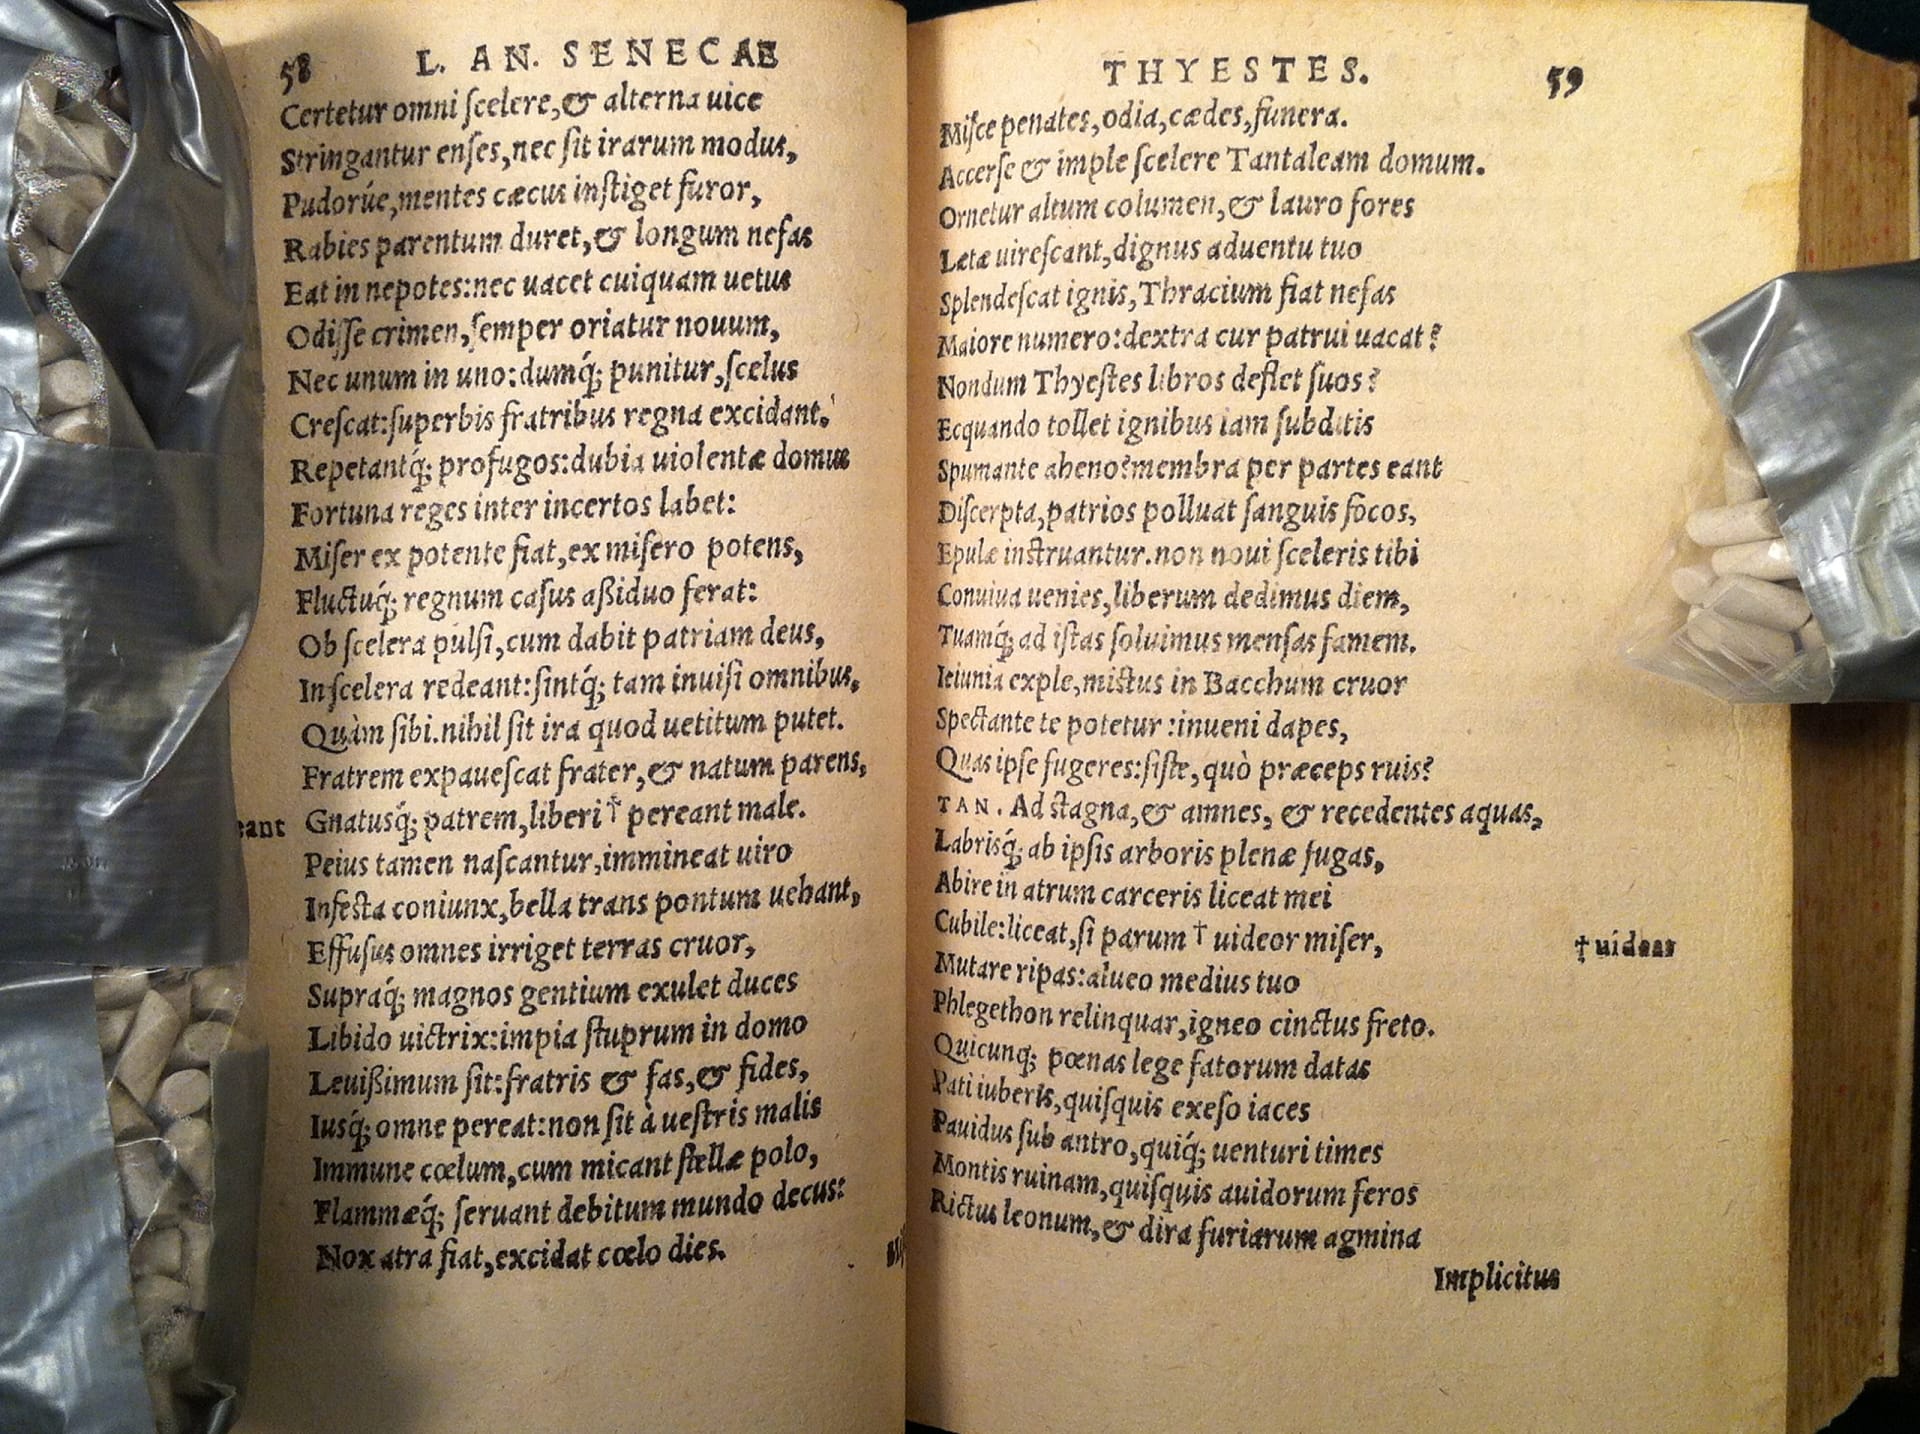 58 L. AN. SENECAE
Certetur omni ſcelere,& alterna uice
Stringantur enſes,nec ſit irarum modus,
Pudorúe,mentes cæcus inſtiget furor,
Rabies parentum duret,& longum nefas
Eat in nepotes:nec uacet cuiquam uetus
Odiſſe crimen,ſemper oriatur nouum,
Nec unum in uno:dumq́; punitur,ſcelus
Creſcat:ſuperbis fratribus regna excidant.
Repetantq́; profugos:dubia uiolentæ domus
Fortuna reges inter incertos labet:
Miſer ex potente fiat,ex miſero potens,
Fluctuq́; regnum caſus aßiduo ferat:
Ob ſcelera pulſi,cum dabit patriam deus,
In ſcelera redeant:ſintq́; tam inuiſi omnibus,
Quàm ſibi.nihil ſit ira quod uetitum putet.
Fratrem expaueſcat frater,& natum parens,
eant Gnatusq́; patrem,liberi † pereant male.
Peius tamen naſcantur,immineat uiro
Infeſta coniunx,bella trans pontum uehant,
Effuſus omnes irriget terras cruor,
Supraq́; magnos gentium exulet duces
Libido uictrix:impia ſtuprum in domo
Leuißimum ſit:fratris & fas,& fides,
Iusq́; omne pereat:non ſit à ueſtris malis
Immune cœlum,cum micant ſtellæ polo,
Flammæq́; ſeruant debitum mundo decus:
Nox atra fiat,excidat cœlo dies.
THYESTES. 59
Miſce penates,odia,cædes,funera.
Accerſe & imple ſcelere Tantaleam domum.
Ornetur altum columen,& lauro fores
Lætæ uireſcant,dignus aduentu tuo
Splendeſcat ignis,Thracium fiat nefas
Maiore numero:dextra cur patrui uacat?
Nondum Thyeſtes libros deflet ſuos?
Ecquando tollet ignibus iam ſubditis
Spumante aheno?membra per partes eant
Diſcerpta,patrios polluat ſanguis focos,
Epulæ inſtruantur.non noui ſceleris tibi
Conuiua uenies,liberum dedimus diem,
Tuamq́; ad iſtas ſoluimus menſas famem.
Ieiunia exple,miſtus in Bacchum cruor
Spectante te potetur:inueni dapes,
Quas ipſe fugeres:ſiſte,quò præceps ruis?
TAN. Ad ſtagna,& amnes, & recedentes aquas,
Labrisq́; ab ipſis arboris plenæ fugas,
Abire in atrum carceris liceat mei
Cubile:liceat,ſi parum † uideor miſer, † uideas
Mutare ripas:alueo medius tuo
Phlegethon relinquar,igneo cinctus freto.
Quicunq; pœnas lege fatorum datas
Pati iuberis,quiſquis exeſo iaces
Pauidus ſub antro,quiq́; uenturi times
Montis ruinam,quiſquis auidorum feros
Rictus leonum,& dira furiarum agmina
Implicitus